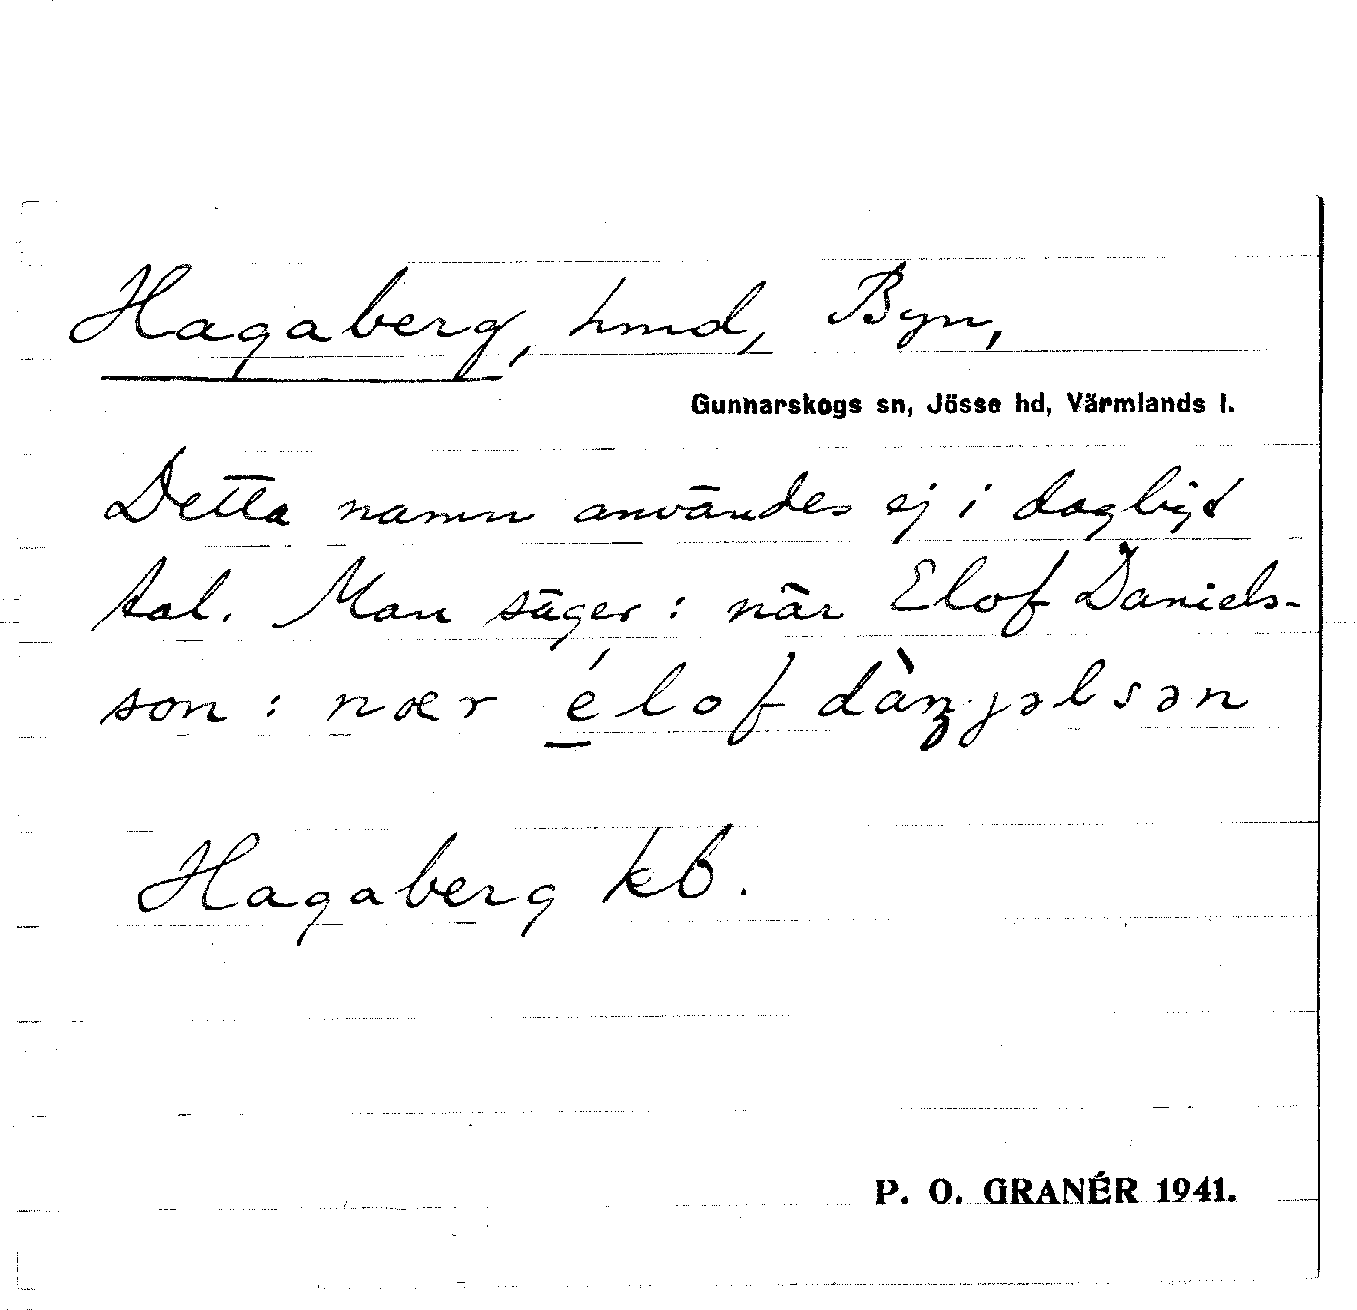 Hagaberg, hmd, Byn,
Gunnarskogs sn, Jösse hd, Värmlands l.
Detta namn användes ej i dagligt
tal. Man säger: när Elof Daniels-
son: nær élof dàn̡jəlsən
Hagaberg kb.
P. O. GRANÉR 1941.